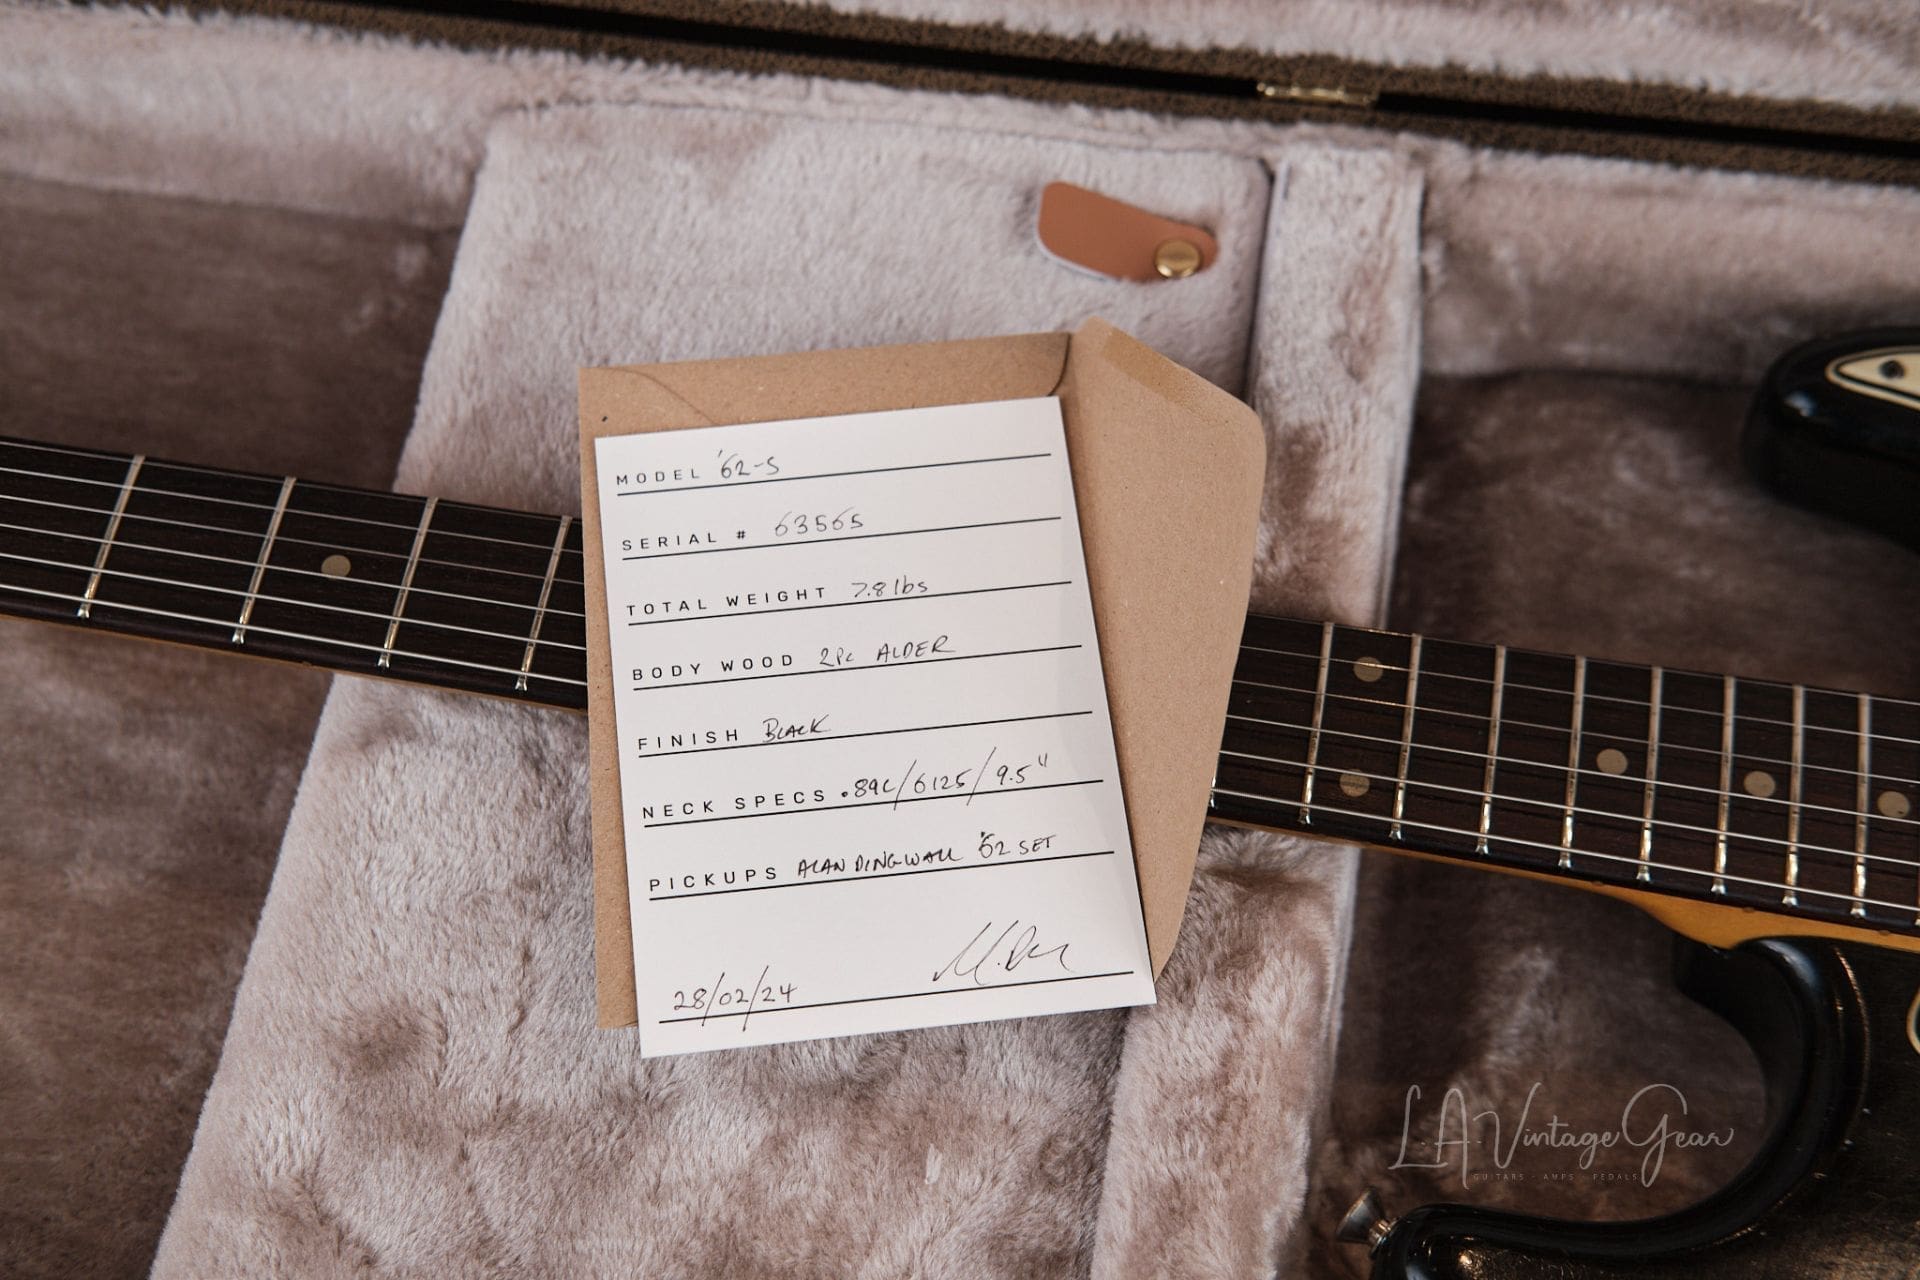 MODEL '62-S
SERIAL # 63565
TOTAL WEIGHT 7.8 lbs
BODY WOOD 2PC ALDER
FINISH BLACK
NECK SPECS .89C/6125/9.5"
PICKUPS ALAN DINGWALL '62 SET
28/02/24
L.A. Vintage Gear
GUITARS - AMPS - PEDALS